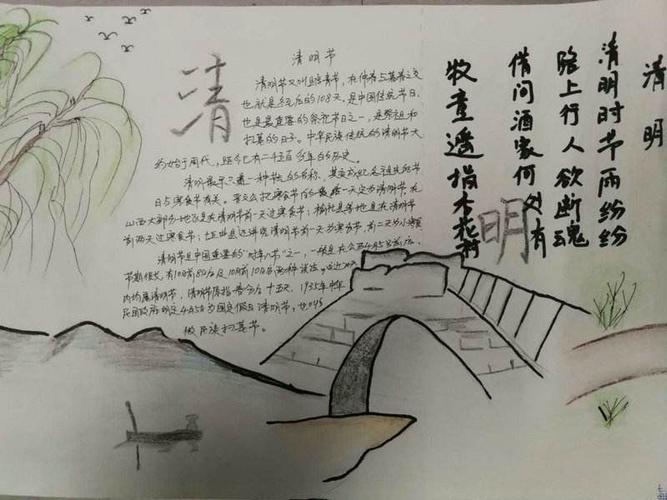 清明
清明时节雨纷纷
路上行人欲断魂
借问酒家何处有
牧童遥指杏花村
清
明
清明节
清明节又叫踏青节，在仲春与暮春之交
也就是冬至后的108天，是中国传统节日，
也是最重要的祭祀节日之一，是祭祖和
扫墓的日子。中华民族传统的清明节大
约始于周代，距今已有二千五百多年的历史。
清明最早只是一种节气的名称，其变成纪念祖先的节
日与寒食节有关。晋文公把寒食节的后一天定为清明节。在
山西大部分地区是在清明节前一天过寒食节；榆社县等地是在清明节
前两天过寒食节；垣曲县还讲究清明节前一天为寒食节，前二天为小寒食
清明节是中国重要的“时年八节”之一，一般是在公历4月5号前后，
节期很长，有10日前8日后及10日前10日后两种说法，
内均属清明节，清明节原指春分后十五天，1935年中华
民国政府明定4月5日为国定假日清明节，也叫
做民族扫墓节。